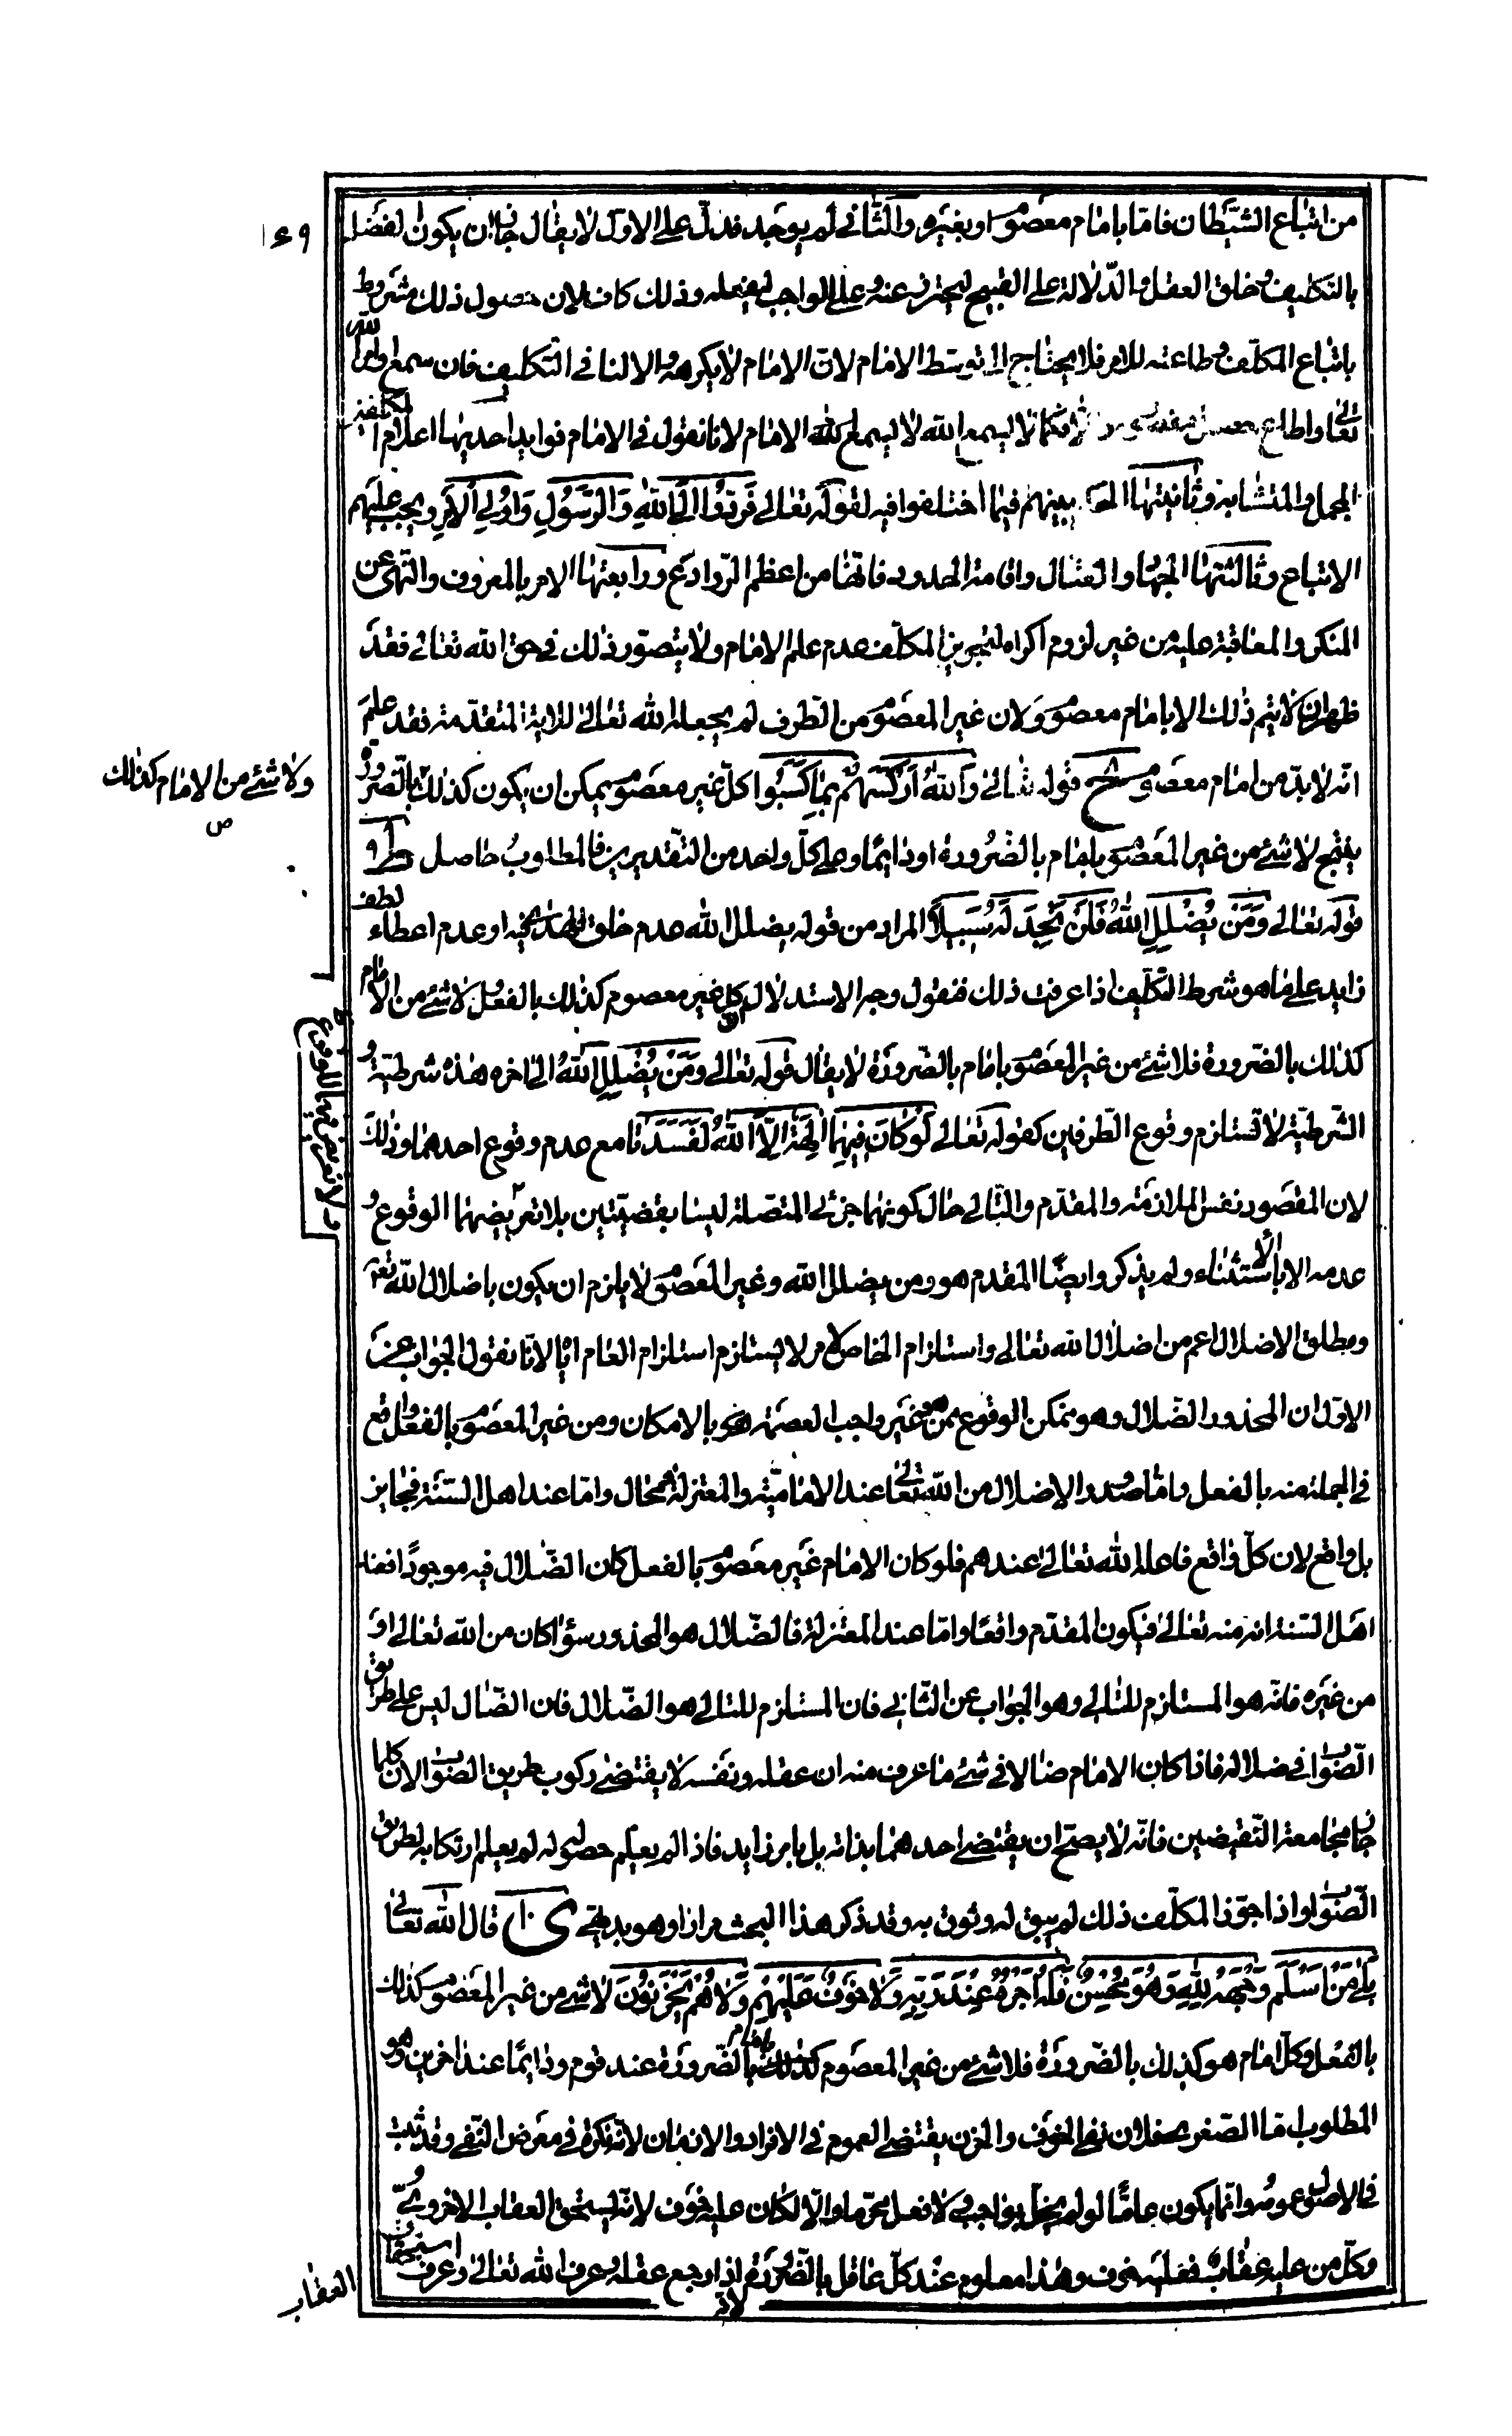 ١٤٩
من اتباع الشيطان فامّا بامام معصوم او بغيره والثاني لم يوجد فدلّ على الاول لا يقال جاز ان يكون لفضل
بالتكليف وخلق العقل والدلالة على القبيح ليحترز عنه وعلى الواجب ليفعله وذلك كاف لان حصول ذلك مشروط
باتباع المكلف وطاعته للامر فلا يحتاج الى توسط الامام لان الامام لا يكرهه والا لنافى التكليف فان سمع اوامر الله
تعالى واطاع لا يسمع الله لا يسمع كلام الامام لانا نقول في الامام فوايد احديها اعلام المكلفين
المجمل والمتشابه وثانيتها بينهم فيما اختلفوا فيه لقوله تعالى فردّوا الى الله والرسول واولي الامر ويجب عليهم
الاتباع وثالثتها الجهاد والقتال واقامة الحدود فانها من اعظم الروادع ورابعتها الامر بالمعروف والنهي عن
المنكر والمعاقبة عليه من غير لزوم اكراه لتجويز المكلف عدم علم الامام ولا يتصوّر ذلك في حق الله تعالى فقد
ظهر ان لا يتم ذلك الا بامام معصوم ولان غير المعصوم من الطرف لم يجعله الله تعالى للاية المتقدمة فقد علم
انه لا بدّ من امام معصوم سح قوله تعالى والله اركسهم بما كسبوا كلّ غير معصوم يمكن ان يكون كذلك بالضرورة
ولا شئ من الامام كذلك ص
ينتج لا شئ من غير المعصوم بامام بالضرورة او دايما وعلى كلّ واحد من التقديرين فالمطلوب حاصل ط
قوله تعالى ومن يضلل الله فلن تجد له سبيلا المراد من قوله يضلل الله عدم خلق الهداية فيه او عدم اعطاء لطف
زايد على ما هو شرط التكليف اذا عرفت ذلك فنقول وجه الاستدلال ان كل غير معصوم كذلك بالفعل ولا شئ من الامام
كذلك بالضرورة فلا شئ من غير المعصوم بامام بالضرورة لا يقال قوله تعالى ومن يضلل الله الى اخره هذه شرطية و
الشرطية لا تستلزم وقوع الطرفين كقوله تعالى لو كان فيهما الهة الّا الله لفسدتا مع عدم وقوع احدهما وذلك
لان المقصود نفس الملازمة والمقدم والتالي حال كونهما جزئي المتصلة ليسا بقضيتين بلا تعرّض فيها للوقوع و
ولا تعرض فيها للوقوع
عدمه الا بالاستثناء ولم يذكر وايضا المقدم هو ومن يضلل الله وغير المعصوم لا يلزم ان يكون باضلال الله تعالى
ومطلق الاضلال اعم من اضلال الله تعالى واستلزام الخاص لامر لا يستلزم استلزام العام اياه لانا نقول الجواب عن
الاول ان المحذور الضلال وهو ممكن الوقوع ممن هو غير واجب العصمة فهو بالامكان ومن غير المعصوم بالفعل واقع
في الجملة منه بالفعل واما صدور الاضلال من الله تعالى عند الامامية والمعتزلة فمحال واما عند اهل السنة فجايز
بل واقع لان كلّ واقع فاعله الله تعالى عندهم فلو كان الامام غير معصوم بالفعل كان الضلال فيه موجودا فعند
اهل السنة انه منه تعالى فيكون المقدم واقعا واما عند المعتزلة فالضلال هو المحذور سواء كان من الله تعالى او
من غيره فانه هو المستلزم للتالي وهو الجواب عن الثاني فان المستلزم للتالي هو الضلال فان الضال ليس على طريق
الصواب في ضلاله فاذا كان الامام ضالا في شئ ما عرف منه ان عقله ونفسه لا يقتضي ركوب طريق الصواب لان كلما
جاز مجامعة النقيضين فانه لا يصح ان يقتضي احدهما بذاته بل بامر زايد فاذا لم يعلم حصوله لم يعلم ارتكابه لطريق
الصواب واذا جوّز المكلف ذلك لم يبق له وثوق به وقد ذكر هذا البحث مرارا وهو بديهي ى قال الله تعالى
بلى من اسلم وجهه لله وهو محسن فله اجره عند ربه ولا خوف عليهم ولا هم يحزنون لا شئ من غير المعصوم كذلك
بالفعل وكل امام هو كذلك بالضرورة فلا شئ من غير المعصوم بامام بالضرورة عند قوم ودايما عند اخرين وهو
المطلوب اما الصغرى فلان نفي الخوف والحزن يقتضي العموم في الافراد والازمان لانه نكرة في معرض النفي وقد ثبت
في الاصول عمومه وانما يكون عاما لو لم يخل بواجب ولا فعل محرّما والّا لكان عليه خوف لانه يستحق العقاب الاخروي
وكلّ من عليه عقاب فعليه خوف وهذا معلوم عند كلّ عاقل بالضرورة لانه اذا رجع عقله وعرف الله تعالى وعرف استحقاق
العقاب